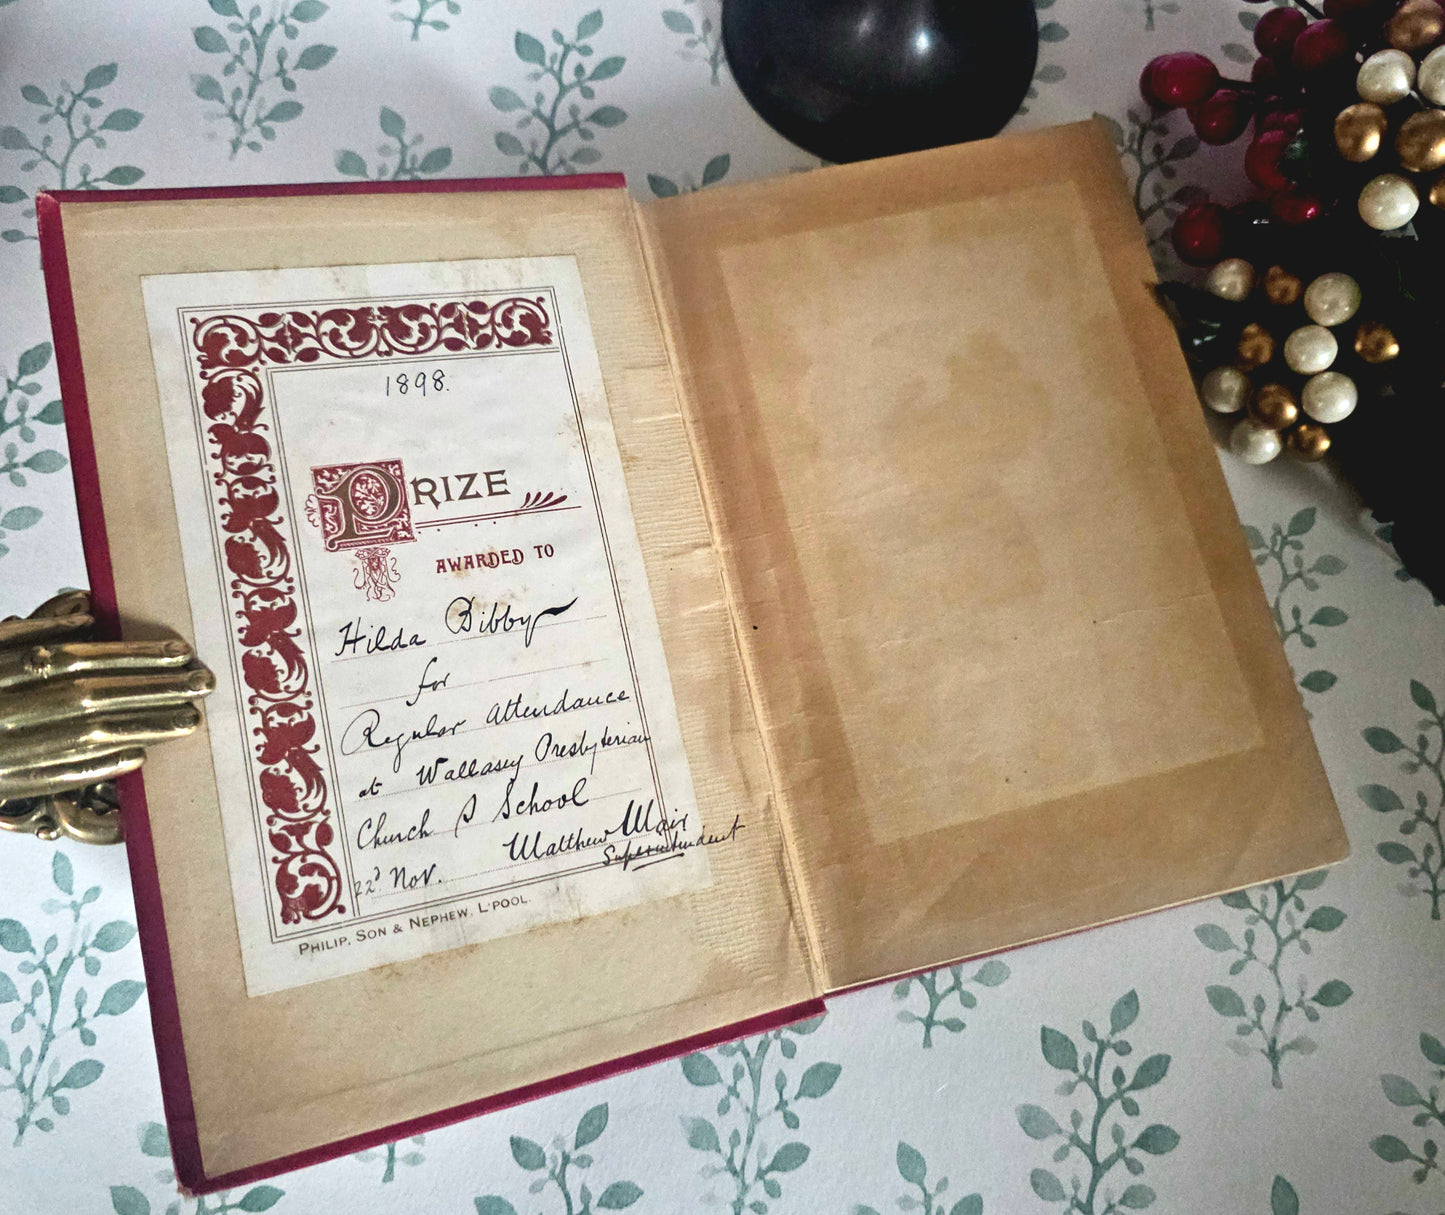 1898.
PRIZE
AWARDED TO
Hilda Bibby
for
Regular Attendance
at Wallasey Presbyterian
Church S School
Matthew Wair
Superintendent
22d Nov.
PHILIP, SON & NEPHEW, L'POOL.